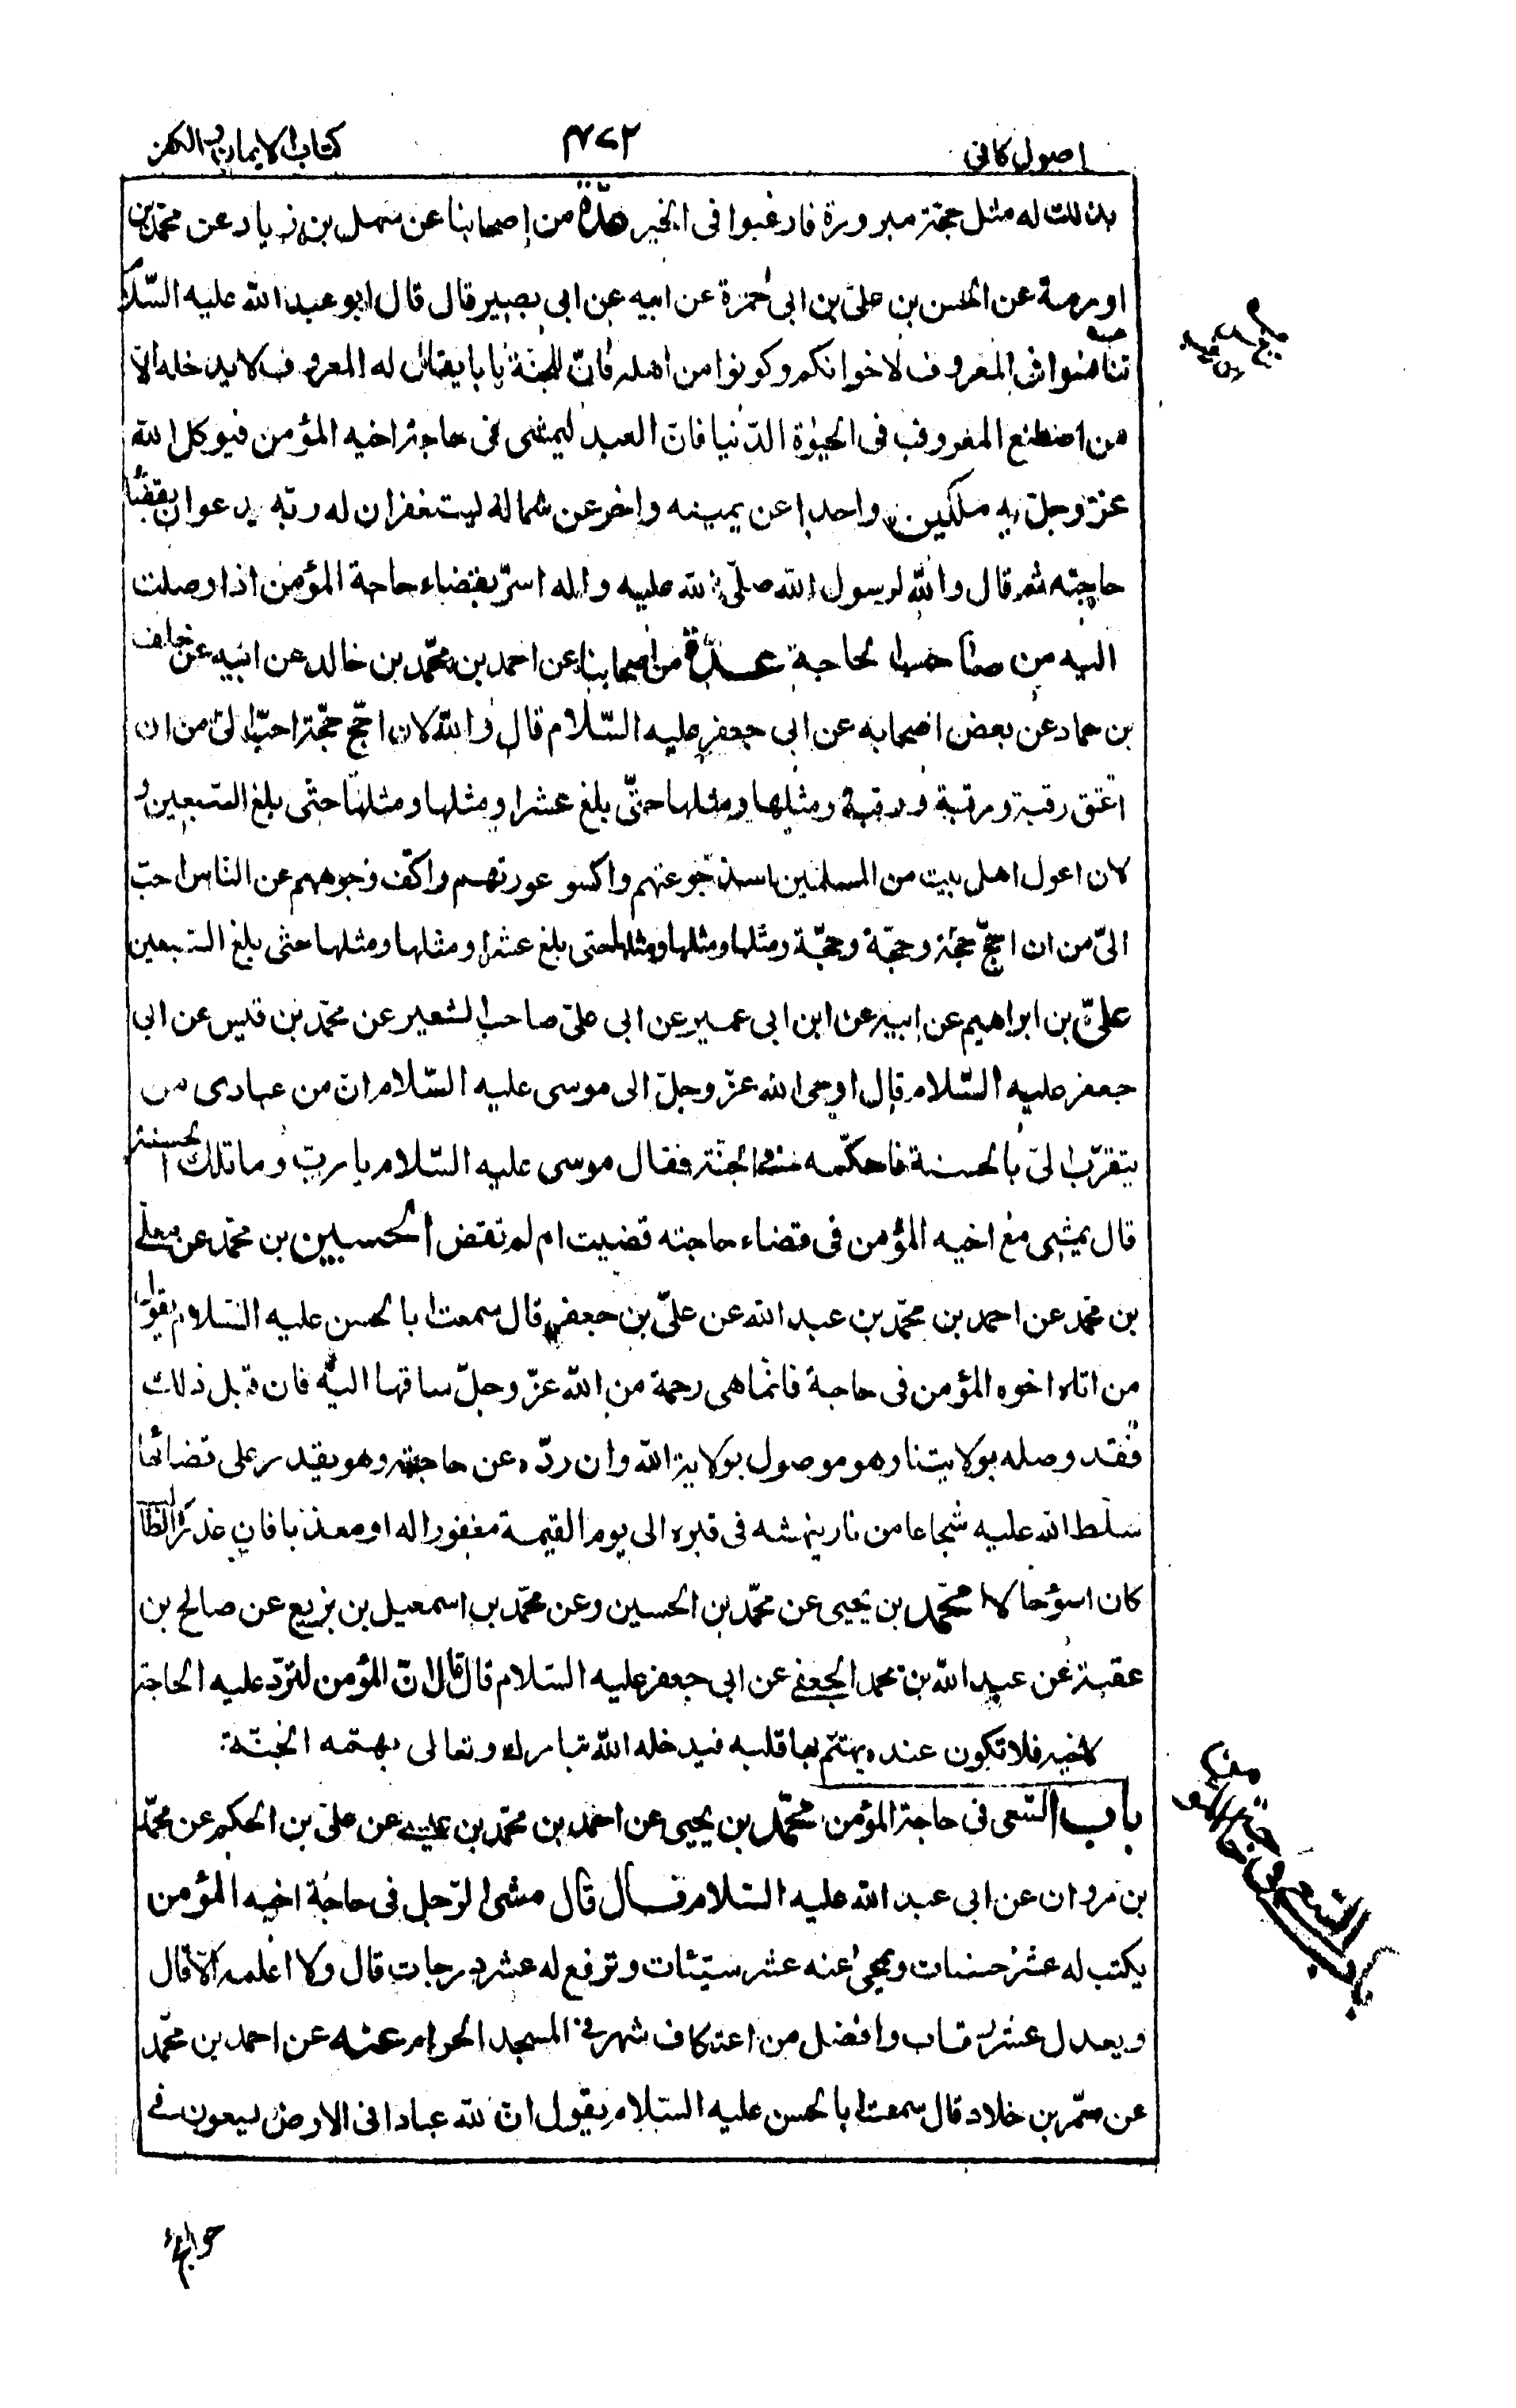 اصول كافى
۴۷۲
كتاب الايمان والكفر
بذلك له مثل حجّة مبرورة فارغبوا فى الخير عدّة من اصحابنا عن سهل بن زياد عن محمّد بن
اورمة عن الحسن بن علىّ بن ابى حمزة عن ابيه عن ابى بصير قال قال ابو عبد الله عليه السّلام
تنافسوا فى المعروف لاخوانكم وكونوا من اهله فانّ للجنّة بابا يقال له المعروف لا يدخله الاّ
من اصطنع المعروف فى الحيوة الدّنيا فانّ العبد ليمشى فى حاجة اخيه المؤمن فيوكل الله
عزّ وجلّ به ملكين واحدا عن يمينه واخر عن شماله ليستغفران له ربّه يدعوان بقضاء
حاجته ثمّ قال والله لرسول الله صلّى الله عليه واله اسرّ بقضاء حاجة المؤمن اذا وصلت
اليه من صاحب الحاجة عدّة من اصحابنا عن احمد بن محمّد بن خالد عن ابيه عن خلف
بن حماد عن بعض اصحابه عن ابى جعفر عليه السّلام قال والله لان احجّ حجّة احبّ الىّ من ان
اعتق رقبة ورقبة ورقبة ومثلها ومثلها حتّى بلغ عشرا ومثلها ومثلها حتّى بلغ السّبعين و
لان اعول اهل بيت من المسلمين اسدّ جوعتهم واكسو عورتهم واكفّ وجوههم عن النّاس احبّ
الىّ من ان احجّ حجّة وحجّة وحجّة ومثلها ومثلها ومثلها حتى بلغ عشرا ومثلها ومثلها حتّى بلغ السّبعين
علىّ بن ابراهيم عن ابيه عن ابن ابى عمير عن ابى علىّ صاحب الشعير عن محمّد بن قيس عن ابى
جعفر عليه السّلام قال اوحى الله عزّ وجلّ الى موسى عليه السّلام انّ من عبادى من
يتقرّب الىّ بالحسنة فاحكّمه فى الجنّة فقال موسى عليه السّلام يا ربّ وما تلك الحسنة
قال يمشى مع اخيه المؤمن فى قضاء حاجته قضيت ام لم تقض الحسين بن محمّد عن معلّى
بن محمّد عن احمد بن محمّد بن عبد الله عن علىّ بن جعفر قال سمعت ابا الحسن عليه السّلام يقول
من اتاه اخوه المؤمن فى حاجة فانّما هى رحمة من الله عزّ وجلّ ساقها اليه فان قبل ذلك
فقد وصله بولايتنا وهو موصول بولاية الله وان ردّه عن حاجته وهو يقدر على قضائها
سلّط الله عليه شجاعا من نار ينهشه فى قبره الى يوم القيمة مغفورا له او معذّبا فان عذره الطالب
كان اسوء حالا محمّد بن يحيى عن محمّد بن الحسين وعن محمّد بن اسمعيل بن بزيع عن صالح بن
عقبة عن عبد الله بن محمد الجعفى عن ابى جعفر عليه السّلام قال قال انّ المؤمن لتردّ عليه الحاجة
لاخيه فلا تكون عنده يهتمّ بها قلبه فيدخله الله تبارك وتعالى بهمّه الجنّة
باب السّعى فى حاجة المؤمن محمّد بن يحيى عن احمد بن محمّد بن عيسى عن علىّ بن الحكم عن محمّد
بن مروان عن ابى عبد الله عليه السّلام قال قال مشى الرّجل فى حاجة اخيه المؤمن
يكتب له عشر حسنات ويمحى عنه عشر سيّئات وترفع له عشر درجات قال ولا اعلمه الاّ قال
ويعدل عشر رقاب وافضل من اعتكاف شهر فى المسجد الحرام عنه عن احمد بن محمّد
عن معمّر بن خلاد قال سمعت ابا الحسن عليه السّلام يقول انّ لله عبادا فى الارض يسعون فى
باب السعى فى حاجة المؤمن
حوائج